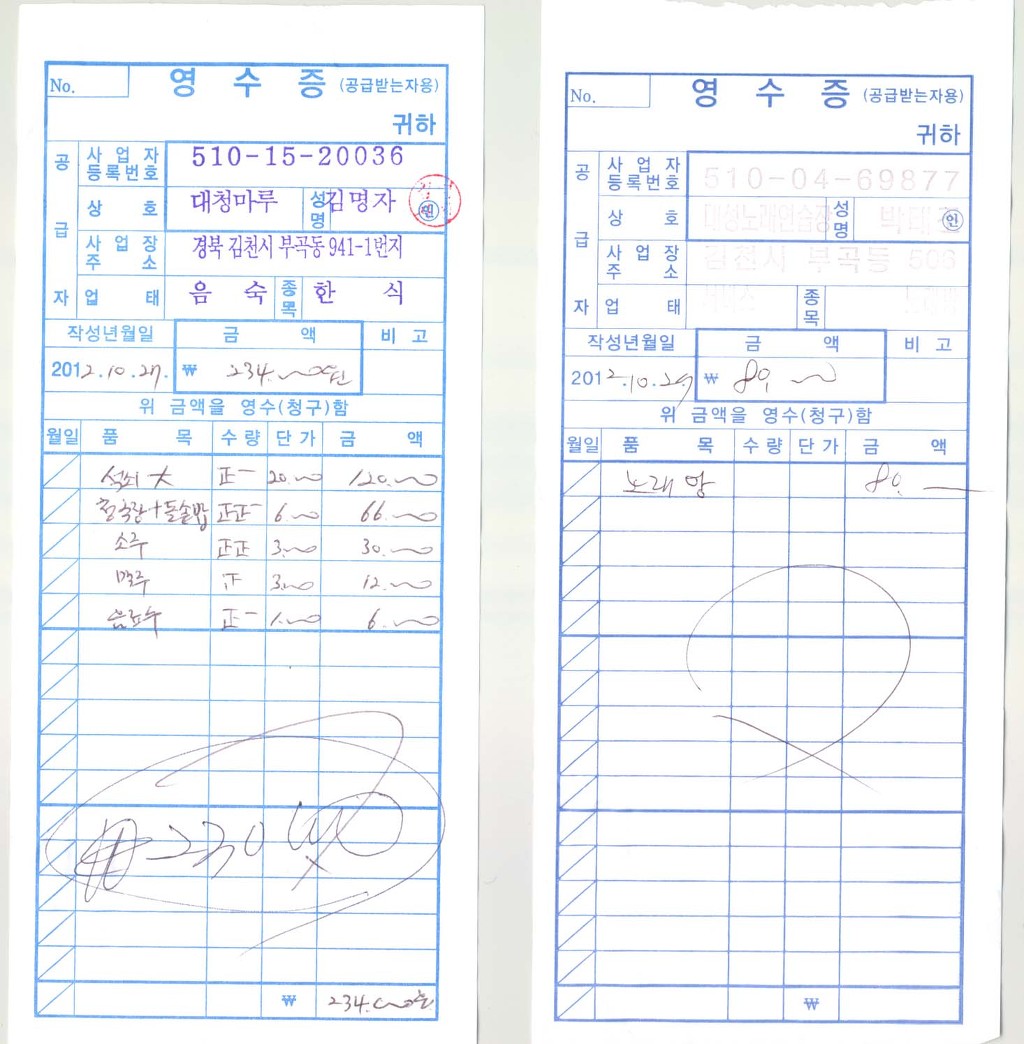 No.
영 수 증 (공급받는자용)
귀하
공 급 자
사업자등록번호 510-15-20036
상 호 대청마루 성명 김명자 인
사업장주소 경북 김천시 부곡동 941-1번지
업 태 음 숙 종목 한 식
작성년월일 금 액 비 고
2012.10.27. ₩ 234.000원
위 금액을 영수(청구)함
월일 품 목 수 량 단 가 금 액
석쇠 大 正一 20.000 120.000
청국장+돌솥밥 正正一 6.000 66.000
소주 正正 3.000 30.000
맥주 3.000 12.000
음료수 正一 1.000 6.000
₩ 230
₩ 234.000원
No.
영 수 증 (공급받는자용)
귀하
공 급 자
사업자등록번호 510-04-69877
상 호 대성노래연습장 성명 인
사업장주소 김천시 부곡동 506
업 태 종목
작성년월일 금 액 비 고
2012.10.27 ₩ 80.000
위 금액을 영수(청구)함
월일 품 목 수 량 단 가 금 액
노래방 80.
₩